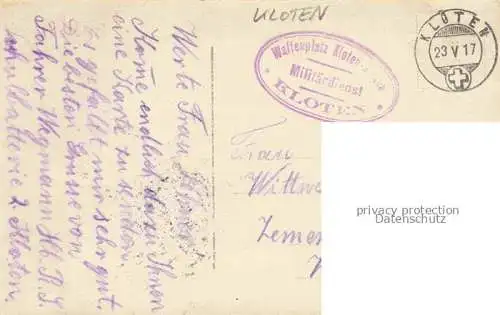 KLOTEN
KLOTEN
23 V 17
Waffenplatz Kloten
Militärdienst
KLOTEN
Werte Frau
Kome endlich dazu Ihnen
eine Karte zu senden.
Es gefällt mir sehr gut.
Die besten Grüsse von
Fahrer Wegmann Hb. R.S.
Schulbatterie 2 Kloten.
Frau
Wittwe
privacy protection
Datenschutz